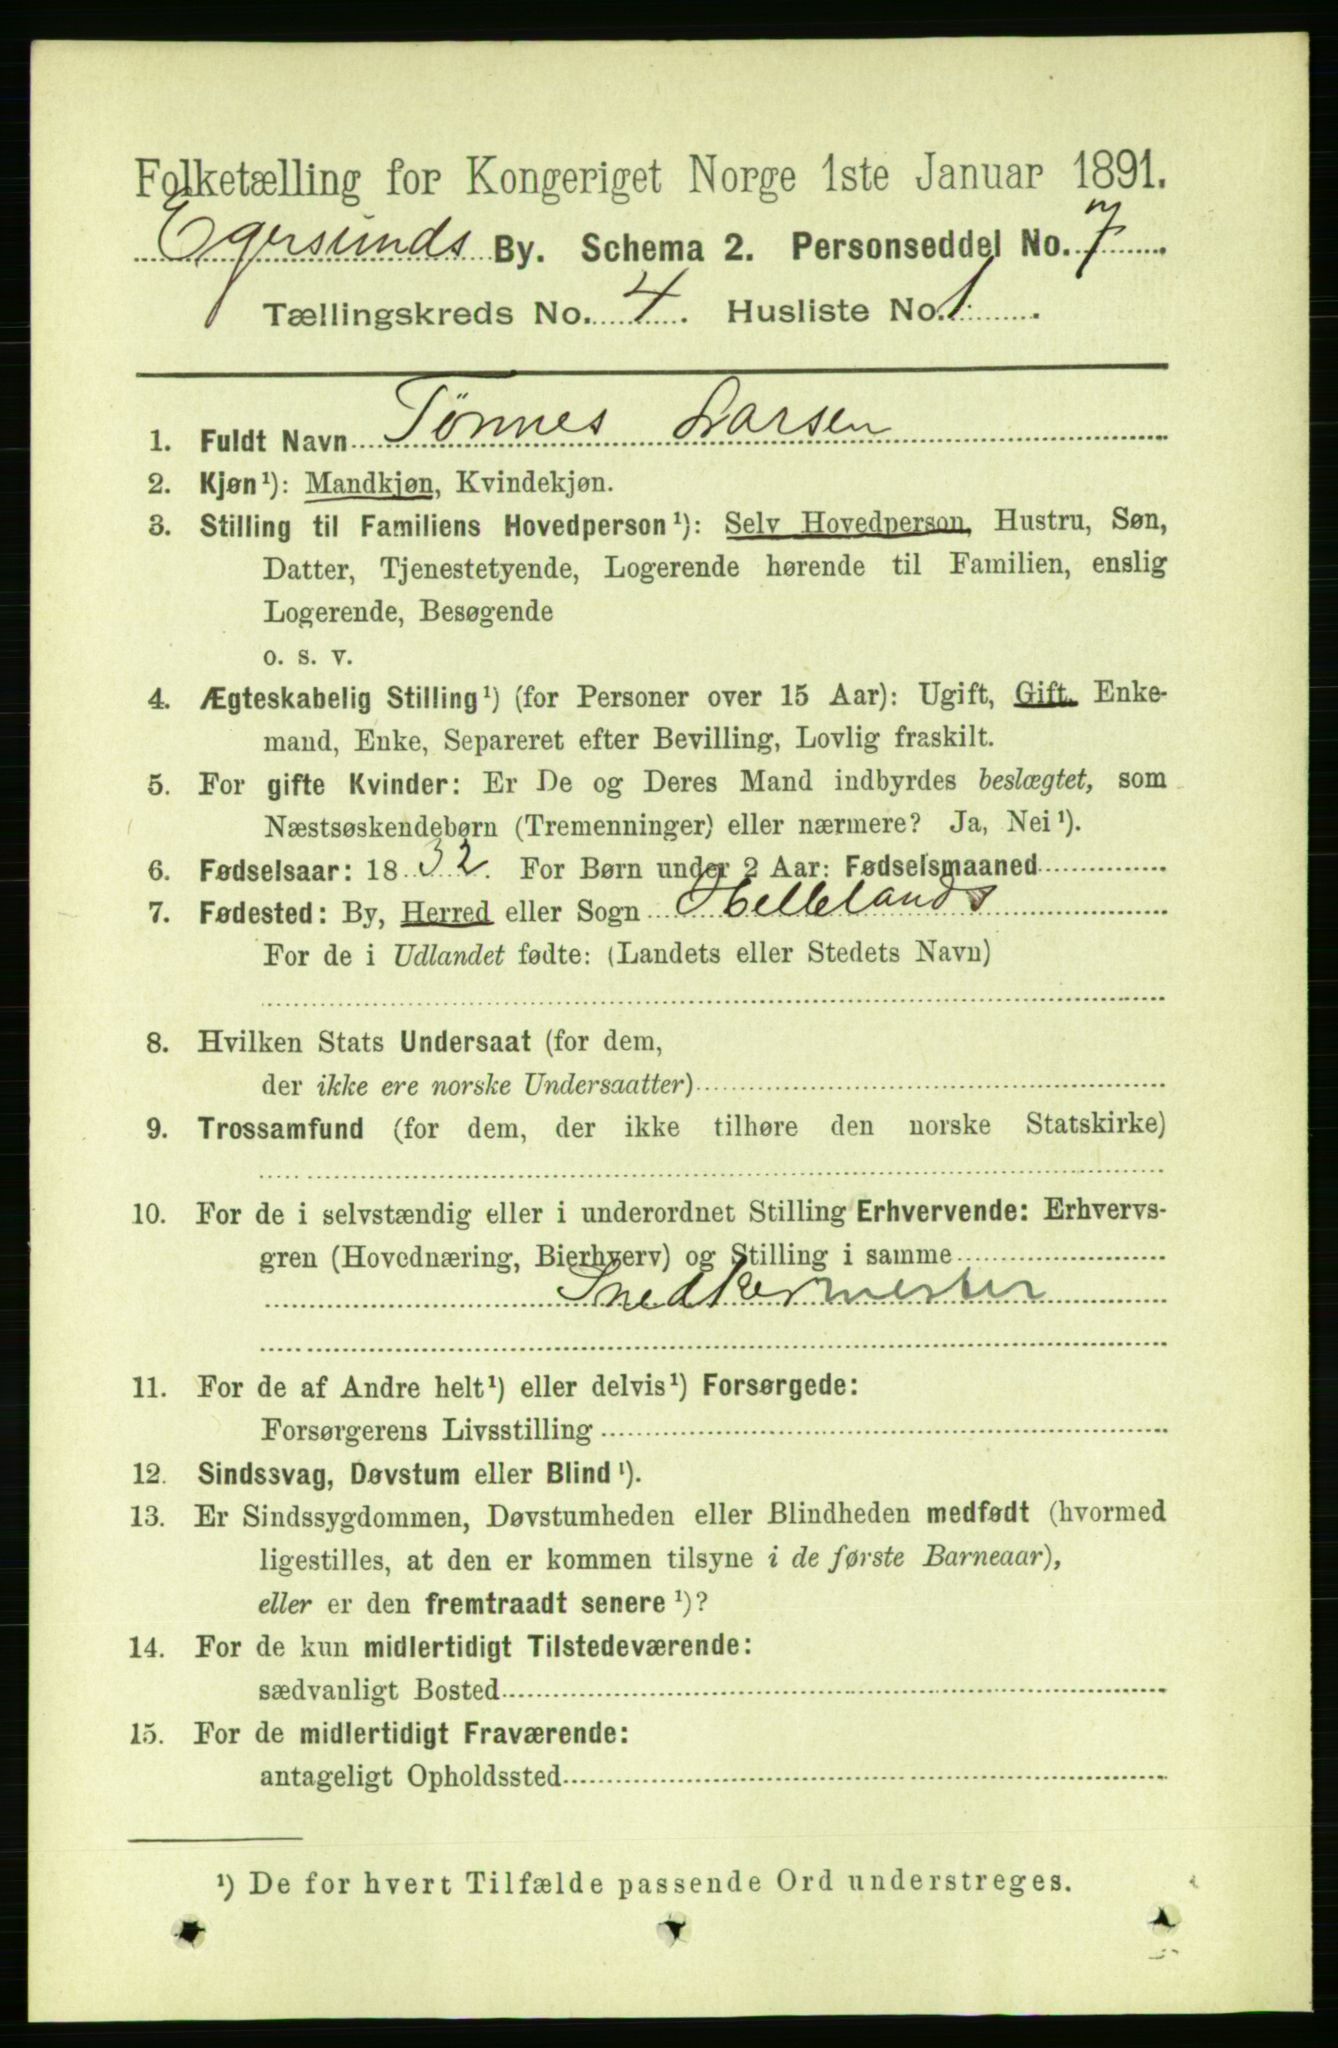 Folketælling for Kongeriget Norge 1ste Januar 1891.
Egersunds By. Schema 2. Personseddel No. 7
Tællingskreds No. 4. Husliste No. 1.
1. Fuldt Navn Tønnes Larsen
2. Kjøn¹): Mandkjøn, Kvindekjøn.
3. Stilling til Familiens Hovedperson¹): Selv Hovedperson, Hustru, Søn,
Datter, Tjenestetyende, Logerende hørende til Familien, enslig
Logerende, Besøgende
o. s. v.
4. Ægteskabelig Stilling¹) (for Personer over 15 Aar): Ugift, Gift, Enke-
mand, Enke, Separeret efter Bevilling, Lovlig fraskilt.
5. For gifte Kvinder: Er De og Deres Mand indbyrdes beslægtet, som
Næstsøskendebørn (Tremenninger) eller nærmere? Ja, Nei¹).
6. Fødselsaar: 1832. For Børn under 2 Aar: Fødselsmaaned
7. Fødested: By, Herred eller Sogn Hellelands
For de i Udlandet fødte: (Landets eller Stedets Navn)
8. Hvilken Stats Undersaat (for dem,
der ikke ere norske Undersaatter)
9. Trossamfund (for dem, der ikke tilhøre den norske Statskirke)
10. For de i selvstændig eller i underordnet Stilling Erhvervende: Erhvervs-
gren (Hovednæring, Bierhverv) og Stilling i samme
Snedkermester
11. For de af Andre helt¹) eller delvis¹) Forsørgede:
Forsørgerens Livsstilling
12. Sindssvag, Døvstum eller Blind¹).
13. Er Sindssygdommen, Døvstumheden eller Blindheden medfødt (hvormed
ligestilles, at den er kommen tilsyne i de første Barneaar),
eller er den fremtraadt senere¹)?
14. For de kun midlertidigt Tilstedeværende:
sædvanligt Bosted
15. For de midlertidigt Fraværende:
antageligt Opholdssted
¹) De for hvert Tilfælde passende Ord understreges.